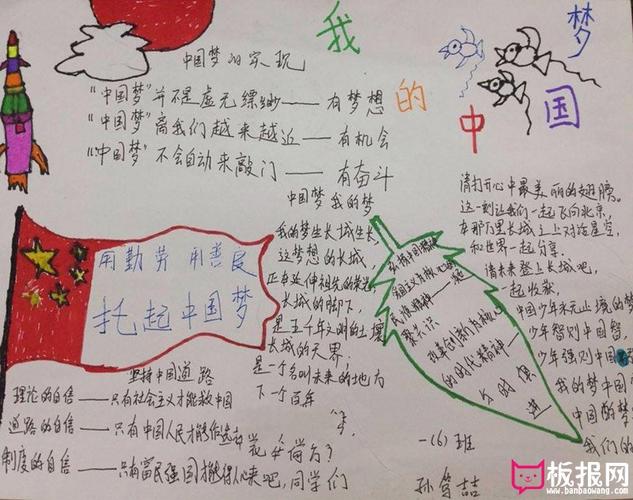 我的中国梦
中国梦的实现
"中国梦"并不是虚无缥缈——有梦想
"中国梦"离我们越来越近——有机会
"中国梦"不会自动来敲门——有奋斗
中国梦 我的梦
用勤劳 用善良
托起中国梦
我的梦生长城生长
这梦想的长城，
正在延伸祖先的荣光
长城的脚下，
是五千年文明的土壤
长城的天界，
是一个名叫未来的地方
下一个百年
民族精神——
聚共识
改革创新为核心
的时代精神——
与时俱进
请打开心中最美丽的翅膀。
这一刻让我们一起飞向北京，
在那万里长城之上对话星空，
和世界一起分享，
请未来登上长城吧，
一起收获
中国少年永无止境的梦
少年智则中国智，
少年强则中国
我的梦中国
中国的梦
我们的
坚持中国道路
理论的自信——只有社会主义才能救中国
道路的自信——只有中国人民才能
制度的自信——只有富民强国才能得人心
来吧，同学们
一(6)班
孙
板报网
www.banbaowang.com